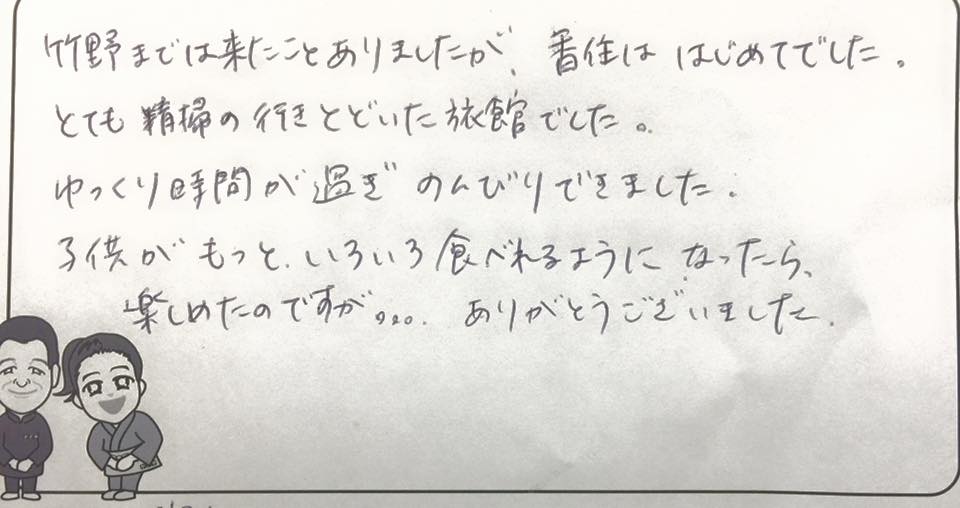 竹野までは来たことありましたが、香住は はじめてでした。
とても 精掃の行きとどいた旅館でした。
ゆっくり時間が過ぎ のんびりできました。
子供が もっと、いろいろ食べれるように なったら、
楽しめたのですが,,... ありがとうございました。